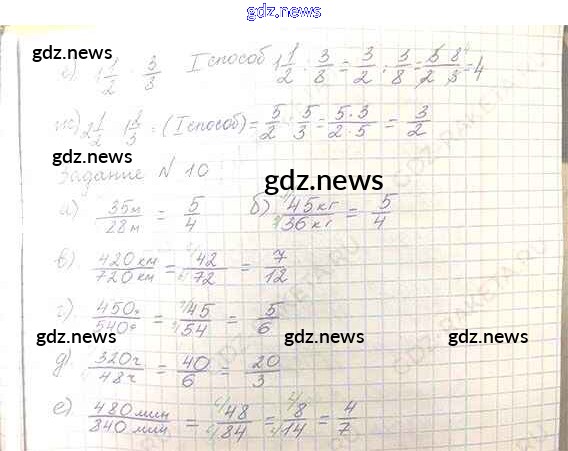 gdz.news
е) 1 1/2 : 3/8 I способ 1 1/2 : 3/8 = 3/2 : 3/8 = 3·8/2·3 = 4
gdz.news gdz.news
ж) 2 1/2 : 1 2/3 = (I способ) = 5/2 : 5/3 = 5·3/2·5 = 3/2
Задание N 10
gdz.news
а) 35м/28м = 5/4 б) 45кг/36кг = 5/4
в) 420 км/720 км = 42/72 = 7/12
г) 450г/540г = 45/54 = 5/6
gdz.news gdz.news gdz.news
д) 320г/48г = 40/6 = 20/3
е) 480 мин/840 мин = 48/84 = 8/14 = 4/7
gdz.news